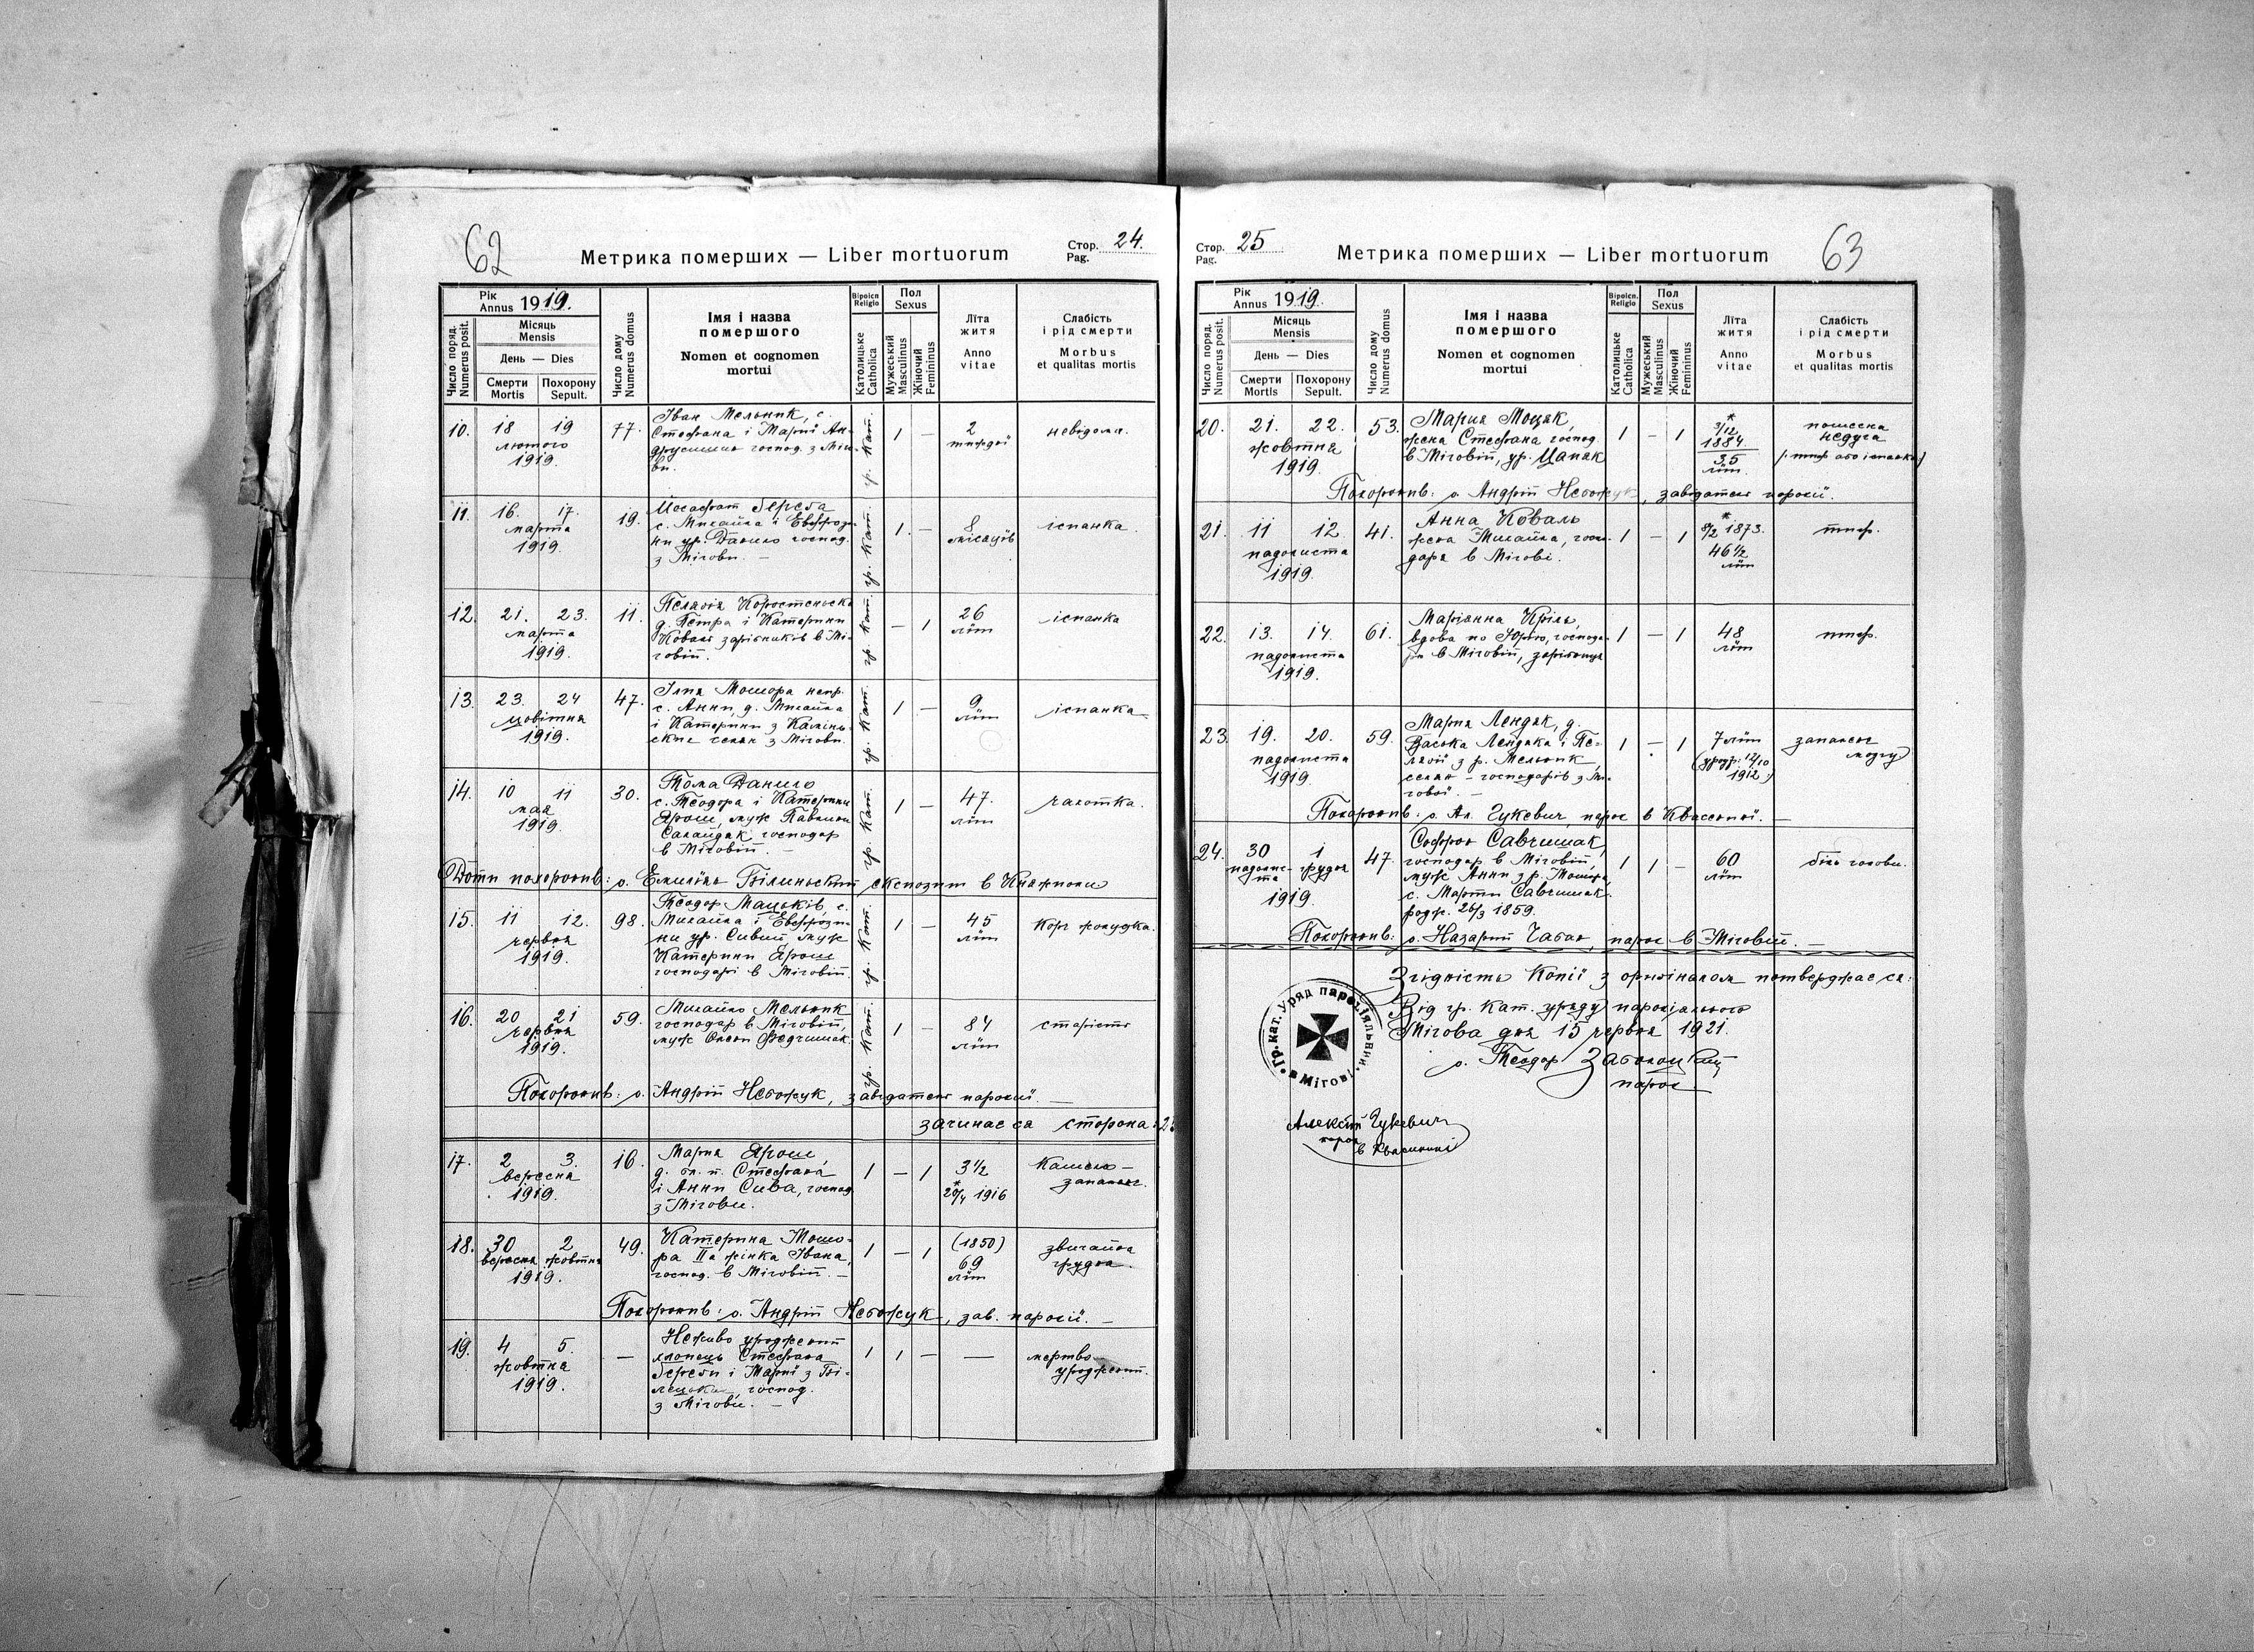 62
Метрика померших — Liber mortuorum
Стор. 24.
Pag.
Рік
Annus 1919.
Число поряд.
Numerus posit.
Місяць
Mensis
День — Dies
Смерти
Mortis
Похорону
Sepult.
Число дому
Numerus domus
Імя і назва
помершого
Nomen et cognomen
mortui
Віроісп.
Religio
Католицьке
Catholica
Пол
Sexus
Мужеський
Masculinus
Жіночий
Femininus
Літа
житя
Anno
vitae
Слабість
і рід смерти
Morbus
et qualitas mortis
10. 18 19 77. Іван Мельник, с. гр. кат. 1 — 2 невідома.
лютого Стефана і Марії Ан- тижднї
1919.
господ. з Міго-
ви.
11. 16. 17. 19. Йосафат Береба гр. кат. 1. — 8 іспанка.
марта с. Михайла і Еврози- місяців
1919. ни ур. Данило господ.
з Мігови. —
12. 21. 23. 11. Пелагія гр. кат. — 1 26 іспанка
марта д. Петра і Катерини лїт
1919. Коваль зарібників в Мі-
говій.
13. 23. 24 47. Ілія Мошора непр. гр. кат. 1 — 9 іспанка
цвітня с. Анни, д. Михайла лїт
1919. і Катерини з
селян з Мігови.
14. 10 11 30. Тома Данило гр. кат. 1 — 47. сухотка.
мая с. Теодора і Катерини лїт
1919. Ярош, муж Павлини
Салайдяк, господар
в Міговій. —
Доти похоронив: о. Емилїян Білинський експозит в Княжполи
15. 11 12. 98. Теодор Мацьків, с. гр. кат. 1 — 45 корч жолудка.
червня Михайла і Еврози- лїт
1919. ни ур. Сивий, муж
Катерини Ярош
господарі в Міговій.
16. 20 21 59. Михайло Мельник гр. кат. 1 — 84 старість
червня господар в Міговій, лїт
1919. муж Олени Федчишак.
Похоронив: о. Андрій Небожук, завідатель парохії. —
зачинає ся сторона: 25
17. 2 3. 16. Мария Ярош, 1 — 1 3 1/2 Кашель —
вересня д. бл. п. Стефана * запалень.
1919. і Анни Сива, господ. 20/4 1916
з Мігови.
18. 30 2 49. Катерина Мошо- 1 — 1 (1850) звичайна
вересня жовтня ра ІІа жінка Івана, 69 грудна.
1919. господ. в Міговій. — лїт
Похоронив: о. Андрій Небожук, зав. парохії. —
19. 4 5. — Неживо уроджений 1 1 — — мертво
жовтня хлопець Стефана уроджений.
1919. Береби і Марії з Бі-
господ.
з Мігови. —
Стор. 25
Pag.
Метрика померших — Liber mortuorum
63
Рік
Annus 1919.
Число поряд.
Numerus posit.
Місяць
Mensis
День — Dies
Смерти
Mortis
Похорону
Sepult.
Число дому
Numerus domus
Імя і назва
помершого
Nomen et cognomen
mortui
Віроісп.
Religio
Католицьке
Catholica
Пол
Sexus
Мужеський
Masculinus
Жіночий
Femininus
Літа
житя
Anno
vitae
Слабість
і рід смерти
Morbus
et qualitas mortis
20. 21. 22. 53. Мария Моцяк, 1 — 1 * 3/12 1884. пошесна
жовтня жена Стефана господ. 35 недуга
1919. в Міговій, ур. Цапяк лїт. (: тиф або іспанка)
Похоронив: о. Андрій Небожук, завідатель парохії.
21. 11 12. 41. Анна Коваль 1 — 1 * 8/2 1873. тиф.
падолиста жена Михайла, госпо- 46 1/2
1919. даря в Мігові. лїт
22. 13. 14. 61. Маріянна Кріль, 1 — 1 48 тиф.
падолиста вдова по Юрію, господа- лїт
1919. ри в Міговій,
23. 19. 20. 59. Мария Лендяк, д. 1 — 1 7 лїт запалень
падолиста Васька Лендяка і Пе- (урдж: 12/10 мозгу
1919. лагії з р. Мельник, 1912)
селян — господарів з Мі-
гової. —
Похоронив: о. Ал. Чукевич, парох в Квасенині. —
24. 30 1 47. Софрон Савчишак, 1 1 — 60 біль голови.
падолис- грудня господар в Міговій, лїт
та муж Анни з р. Мошора,
1919. с. Марти Савчишак.
родж. 26/3 1859.
Похоронив: о. Назарий Чабан, парох в Міговій. —
Згідність копії з оригіналом потверджає ся:
Від гр. кат. уряду парохіяльного
Мігова дня 15 червня 1921.
о. Теодор
парох
Гр. кат. уряд парохіяльний в Мігові
Алексій Чукевич
парох
в Квасенині